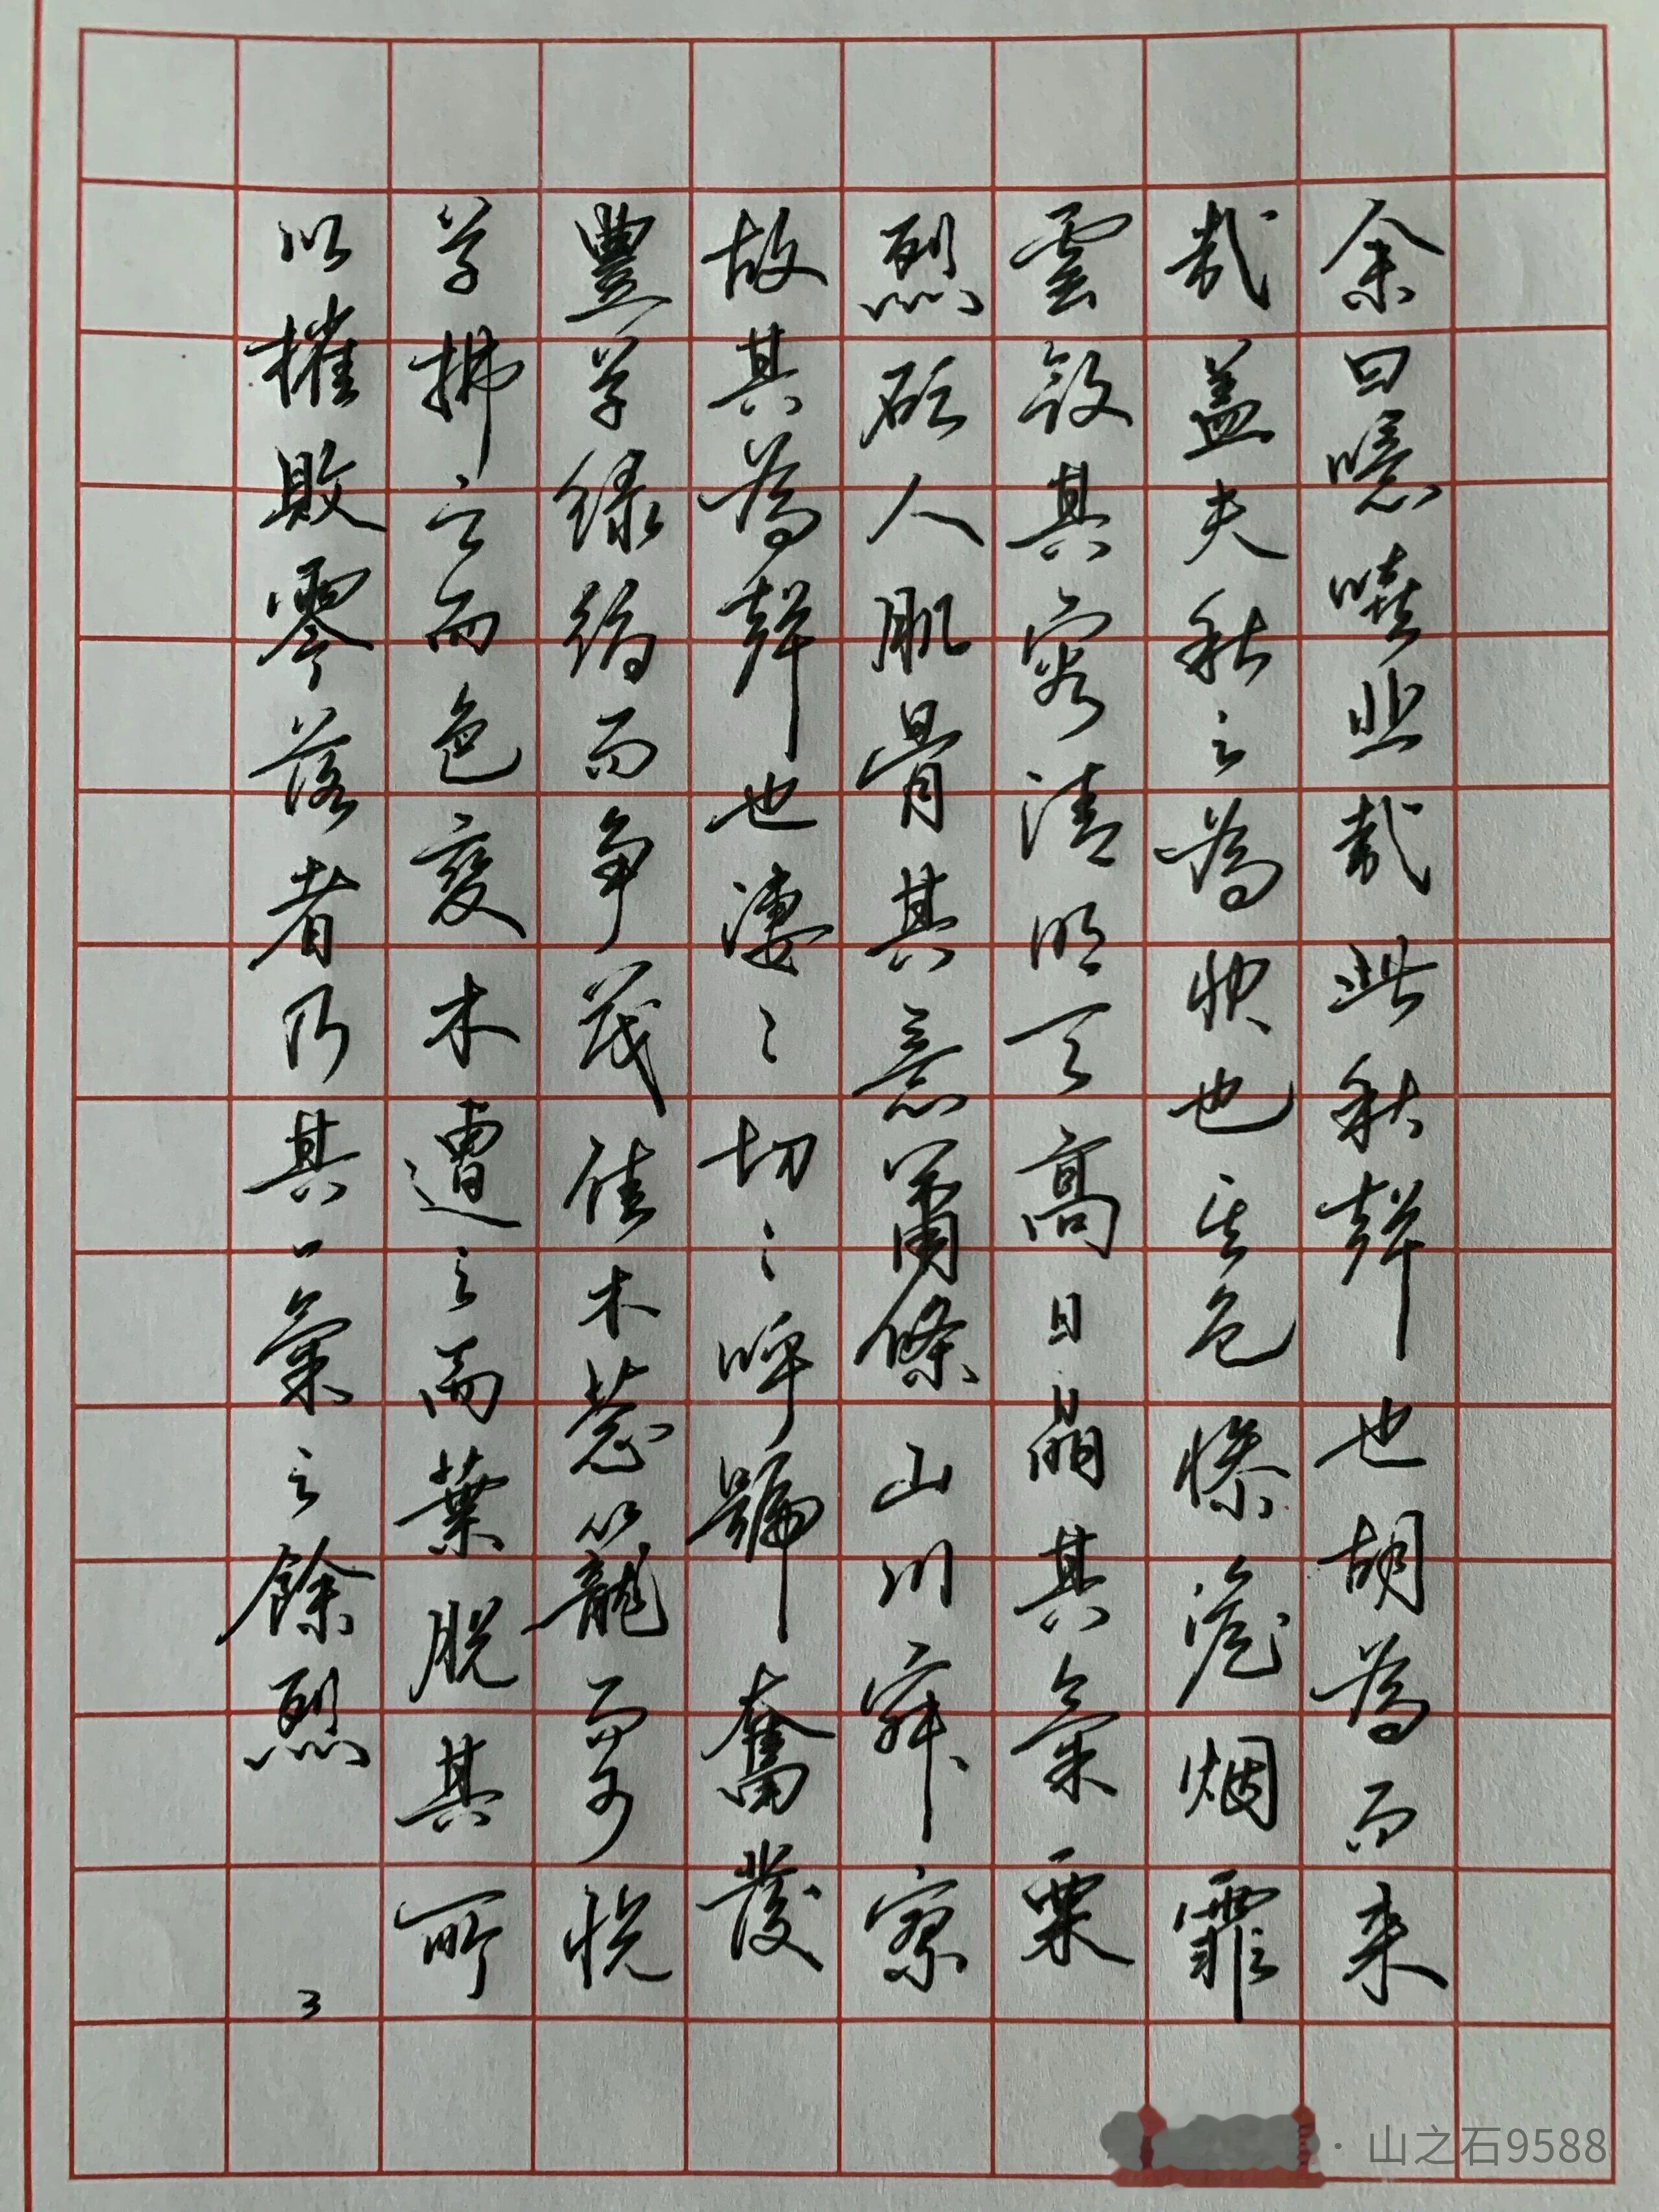 余曰噫嘻悲哉此秋聲也胡為而来
哉盖夫秋之為狀也其色慘澹烟霏
雲斂其容清明天高日晶其氣栗
烈砭人肌骨其意蕭條山川寂寥
故其為聲也淒〻切〻呼號奮發
豐草綠縟而争茂佳木葱籠而可悦
草拂之而色變木遭之而葉脱其所
以摧敗零落者乃其一氣之餘烈
3
· 山之石9588